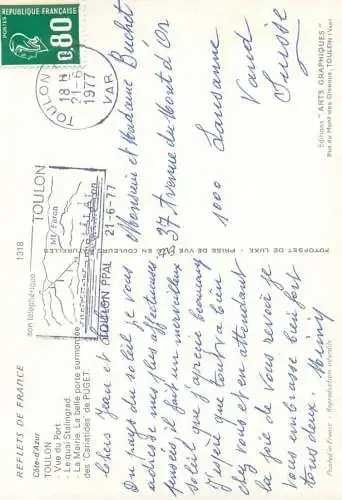 REFLETS DE FRANCE
1318
Côte-d'Azur
TOULON
- Vue du Port
- Le quai Stalingrad.
- La Mairie. La belle porte surmontée
des "Cariatides" de PUGET.
Chers Jean et
Du pays du soleil je vous
adresse mes plus affectueuses
pensées, il fait un merveilleux
soleil que j'apprécie beaucoup
J'espère que tout va bien
chez vous et en attendant
la joie de vous revoir je
vous embrasse bien fort
tous deux.
PHOTOFFSET DE LUXE - PRISE DE VUE EN COULEURS NATURELLES
REPUBLIQUE FRANÇAISE
POSTES
0,80
TOULON
18 H
21-6
1977
VAR
TOULON
Mt Faron
son téléphérique
TOULON PPAL
21-6-77
Monsieur et Madame Buchet
37 Avenue du Mont d'or
1000 Lausanne
Vaud
Suisse
Editions "ARTS GRAPHIQUES"
Rue du Mont des Oiseaux, TOULON (Var)
Printed in France - Reproduction interdite